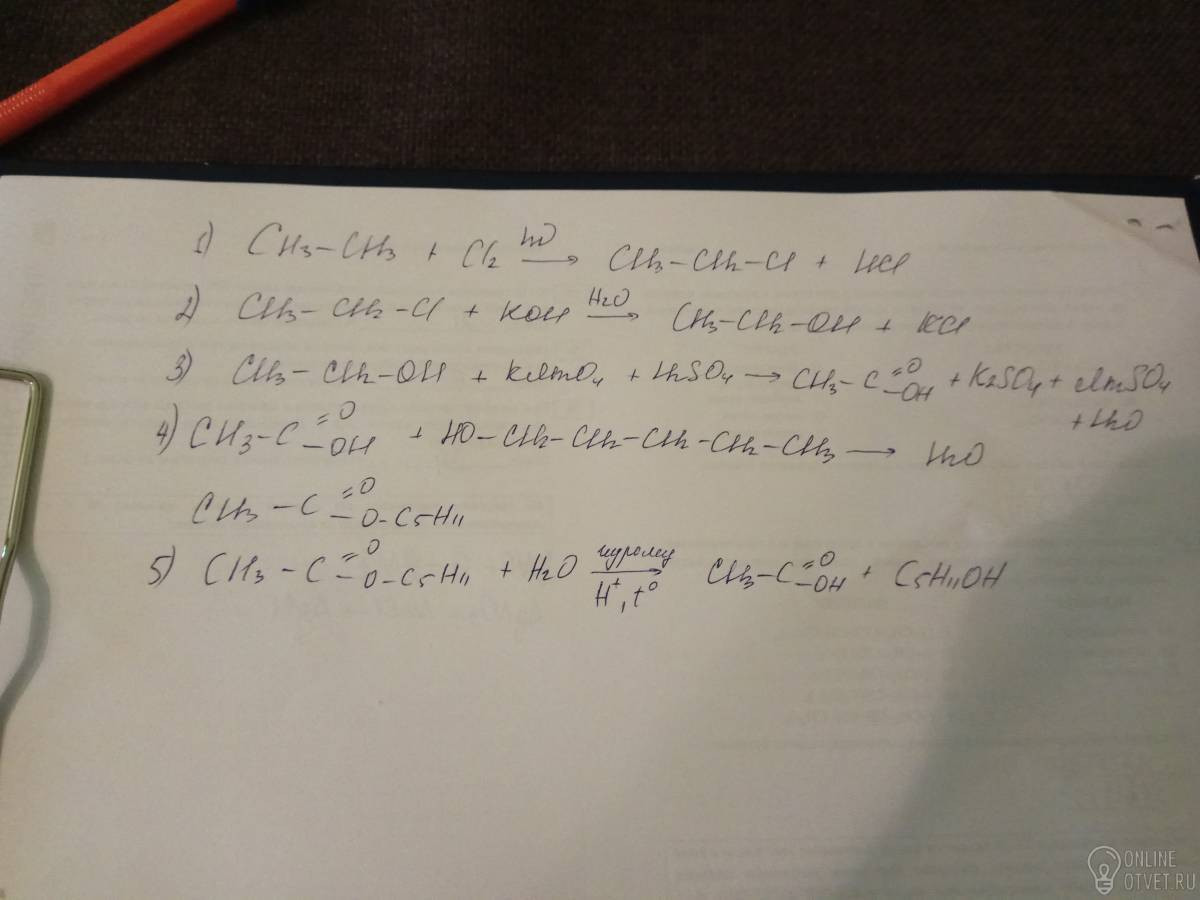 1) CH3-CH3 + Cl2 hν → CH3-CH2-Cl + HCl
2) CH3-CH2-Cl + KOH H2O → CH3-CH2-OH + KCl
3) CH3-CH2-OH + KMnO4 + H2SO4 → CH3-C=O-OH + K2SO4 + MnSO4
+ H2O
4) CH3-C=O-OH + HO-CH2-CH2-CH2-CH2-CH3 → H2O
CH3-C=O-O-C5H11
5) CH3-C=O-O-C5H11 + H2O H+, t° → CH3-C=O-OH + C5H11OH
ONLINE
OTVET.RU